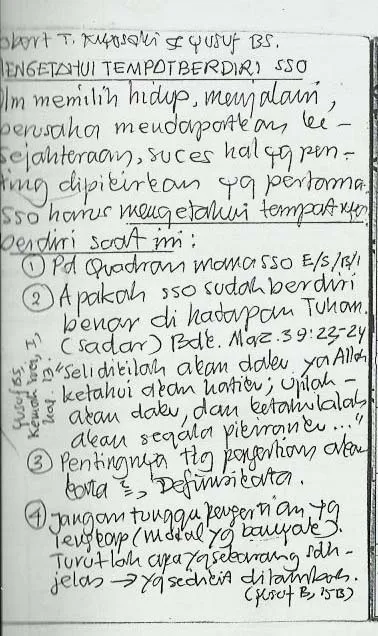 obert T. Kiyosaki & Yusuf BS.
MENGETAHUI TEMPAT BERDIRI SSO
Dlm memilih hidup, menjalani,
berusaha mendapatkan ke-
sejahteraan, suces hal yg pen-
ting dipikirkan yg pertama
SSO harus mengetahui tempatnya
berdiri saat ini:
① Pd Quadran mana sso E/S/B/I
② Apakah sso sudah berdiri
benar di hadapan Tuhan.
(sadar) Bdk. Maz. 39:23-24
"Selidikilah akan daku ya Allah
ketahui akan hatiku; ujilah-
akan daku, dan ketahuilah
akan segala pikiranku..."
③ Pentingnya ttg pengertian akan
kata², Definisi kata.
④ Jangan tunggu pengertian yg
lengkap (modal yg banyak).
Turutlah apa yg sekarang sdh-
jelas → yg sedikit ditambah.
(Yusuf B, 15B)
Yusuf BS,
hal. 13.